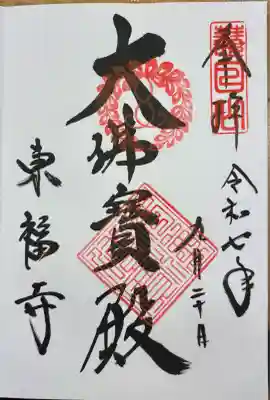 奉拝
令和七年
九月二十日
大佛寳殿
東福寺